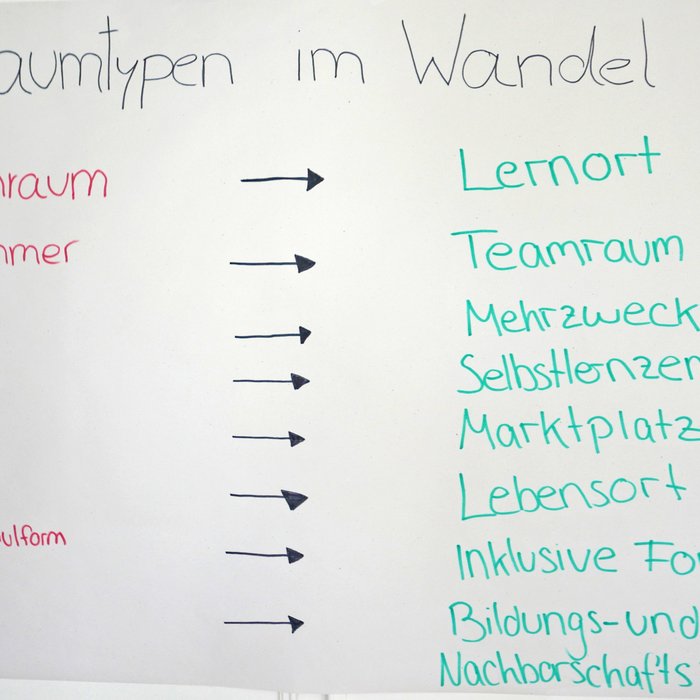 aumtypen im Wandel
nraum → Lernort
mmer → Teamraum
→ Mehrzweck
→ Selbstlernzen
→ Marktplatz
→ Lebensort
ulform → Inklusive Fo
→ Bildungs-und
Nachborschafts